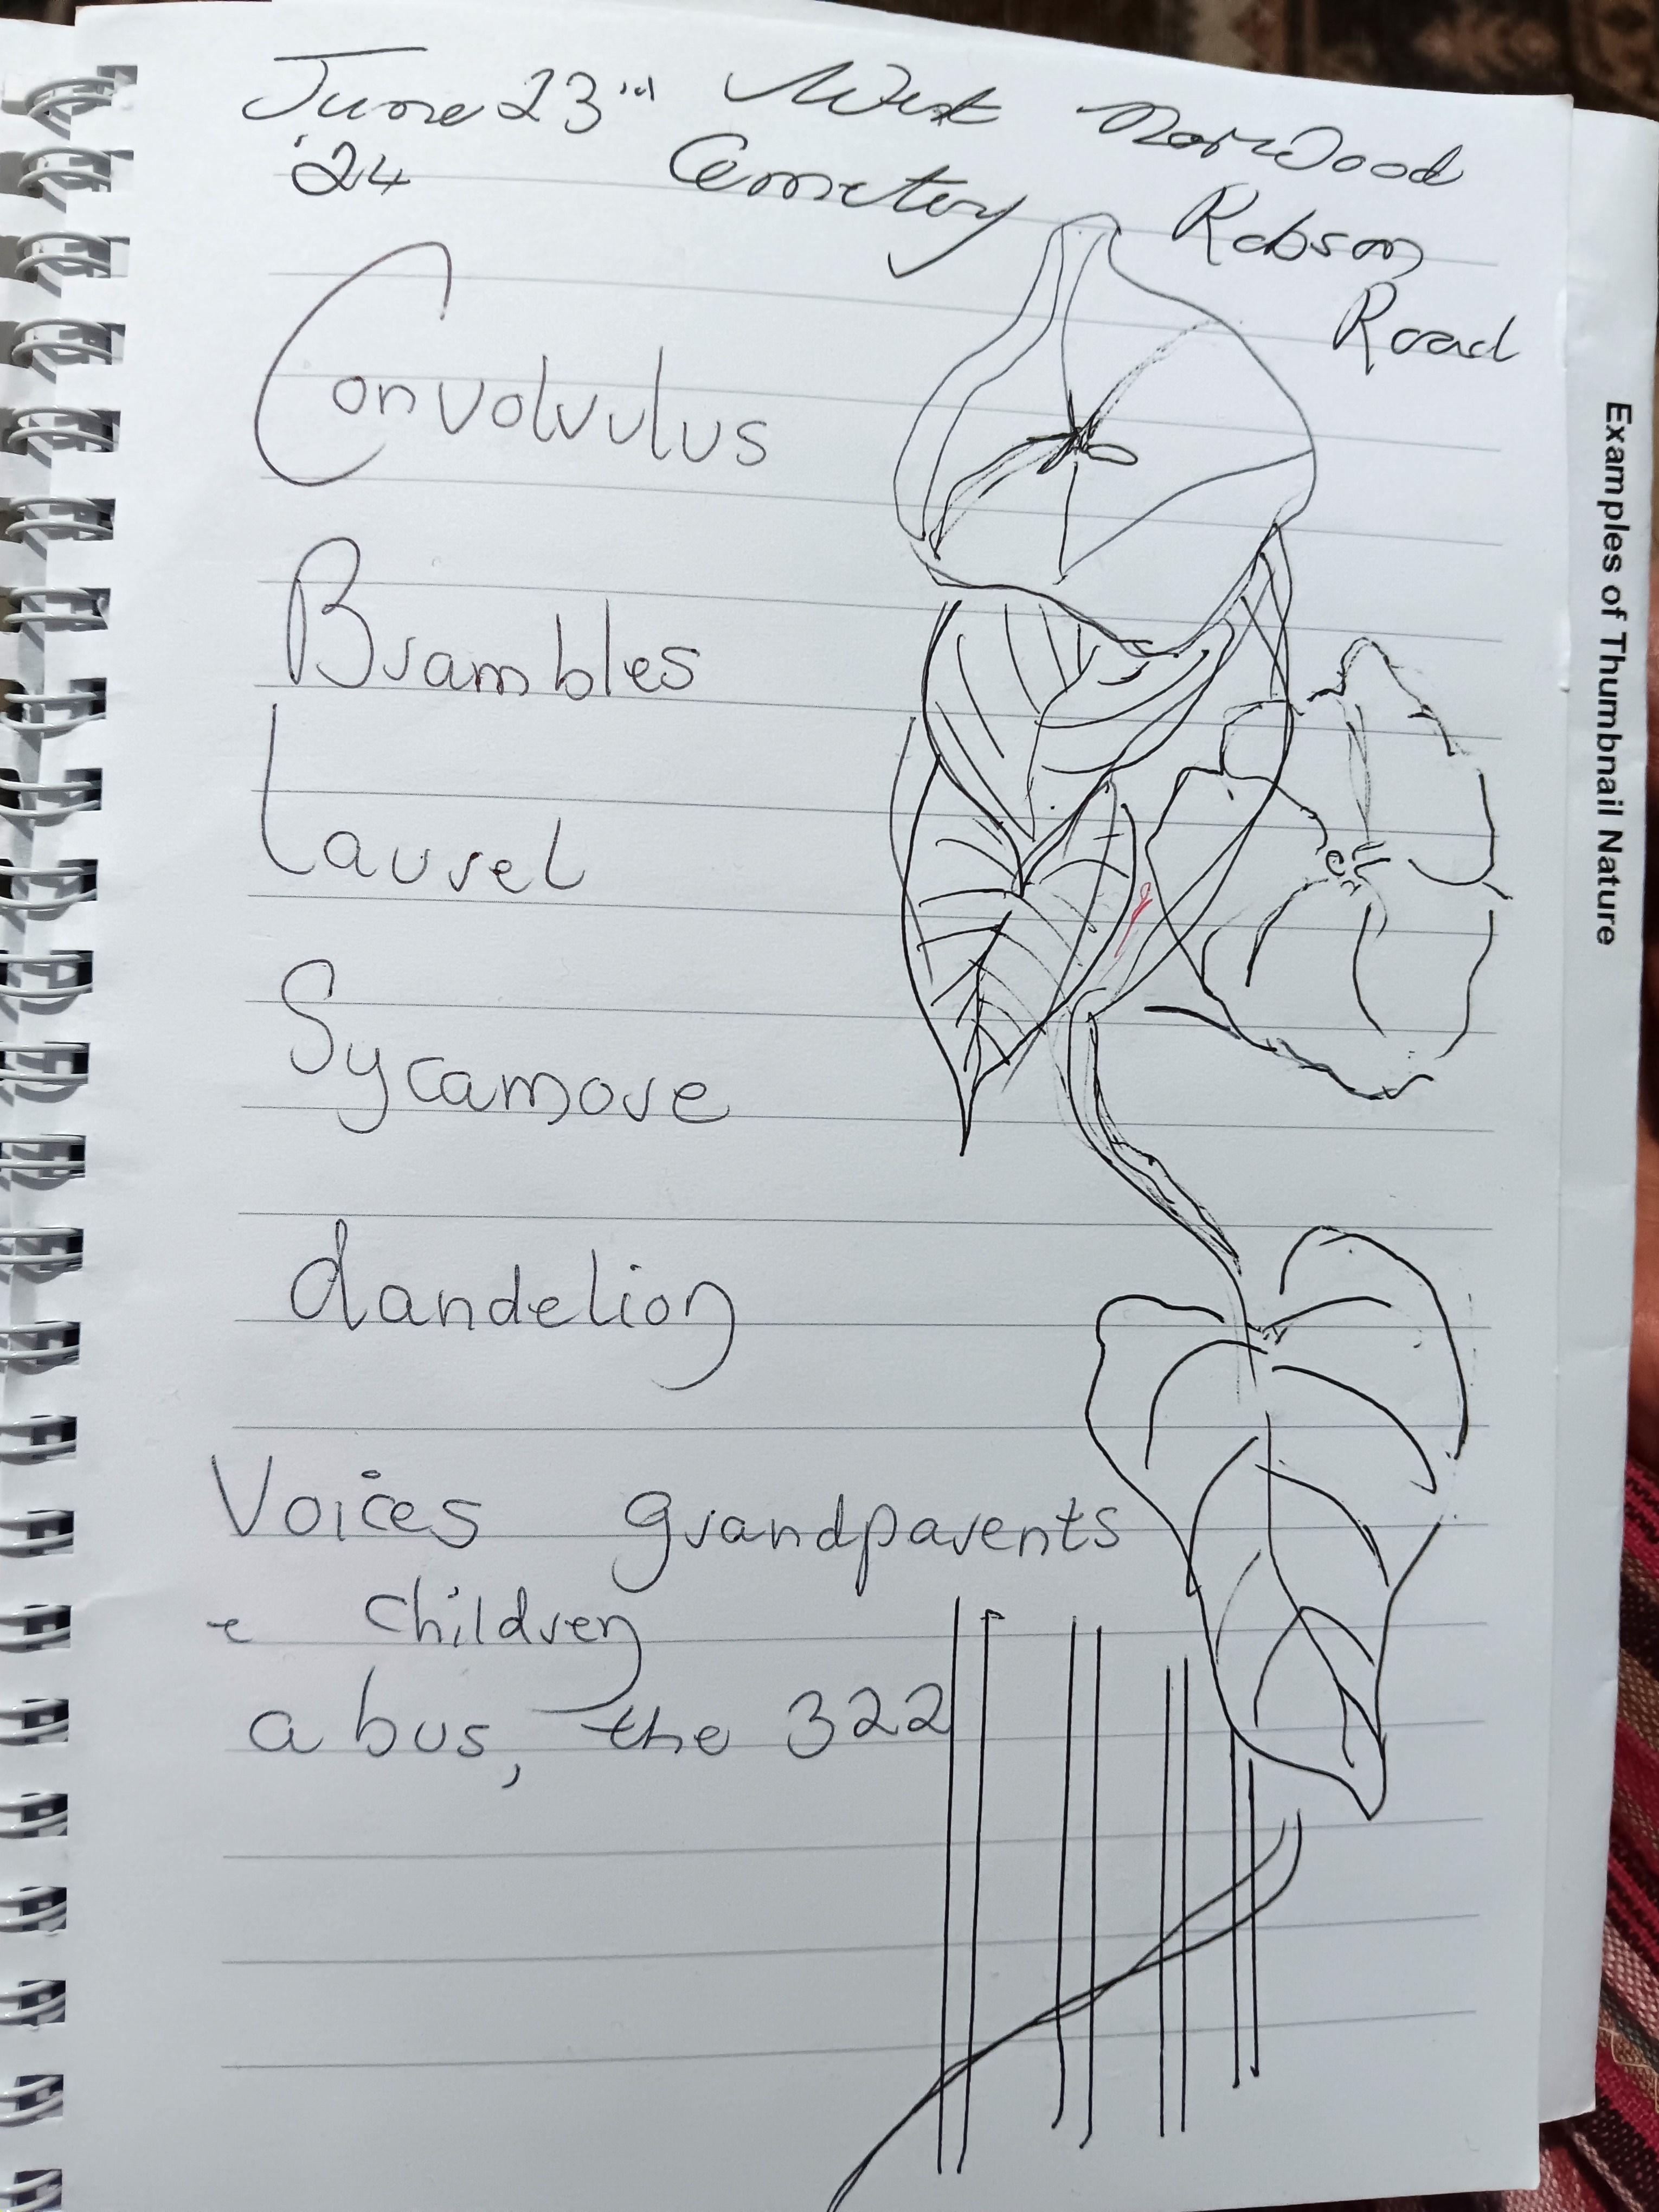 June 23rd West Norwood
'24 Cemetery Robson
Road
Convolvulus
Brambles
Laurel
Sycamore
dandelion
Voices grandparents
e children
a bus, the 322
Examples of Thumbnail Nature